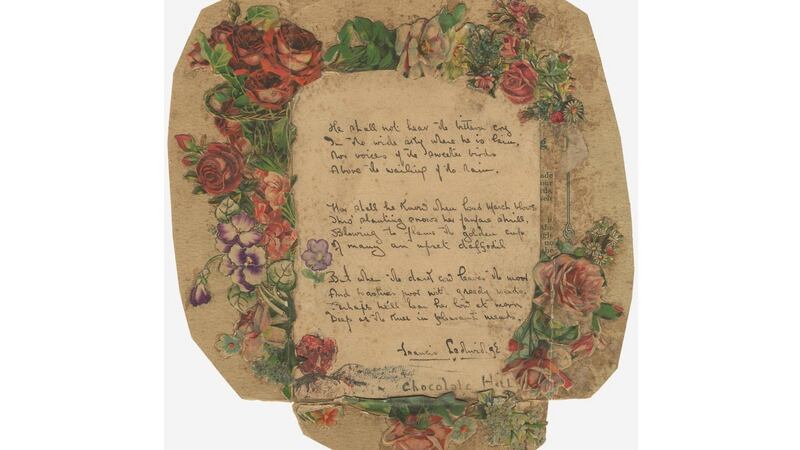 He shall not hear the bittern cry
In the wide sky where he is lain,
Nor voices of the sweeter birds
Above the wailing of the rain.
Nor shall he know when loud March blows
Thro' slanting snows her fanfare shrill,
Blowing to flame the golden cup
Of many an upset daffodil
But when the dark cow leaves the moor
And pastures poor with greedy weeds,
Perhaps he'll hear her low at morn
Deep as the knee in pleasant meads.
Francis Ledwidge
Chocolate Hill